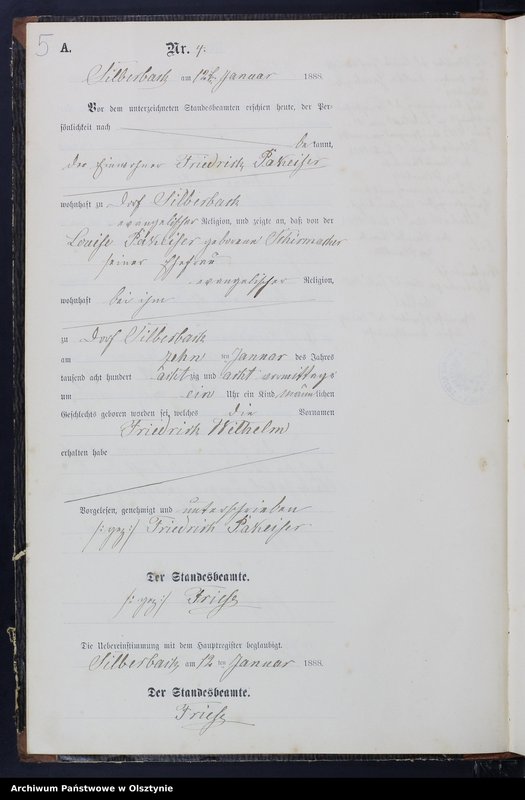 5
A. Nr. 4.
Silberbach am 12t. Januar 1888.
Vor dem unterzeichneten Standesbeamten erschien heute, der Per-
sönlichkeit nach
be kannt,
der Einwohner Friedrich Pakeiser
wohnhaft zu Dorf Silberbach
evangelischer Religion, und zeigte an, daß von der
Louise Pakeiser geborenen Schirmacher
seiner Ehefrau
evangelischer Religion,
wohnhaft bei ihm
zu Dorf Silberbach
am zehn ten Januar des Jahres
tausend acht hundert acht zig und acht vormittags
um ein Uhr ein Kind männ lichen
Geschlechts geboren worden sei, welches die Vornamen
Friedrich Wilhelm
erhalten habe
Vorgelesen, genehmigt und unterschrieben
/: gez :/ Friedrich Pakeiser
Der Standesbeamte.
/: gez :/ Friese
Die Uebereinstimmung mit dem Hauptregister beglaubigt.
Silberbach, am 12 ten Januar 1888.
Der Standesbeamte.
Friese
Archiwum Państwowe w Olsztynie